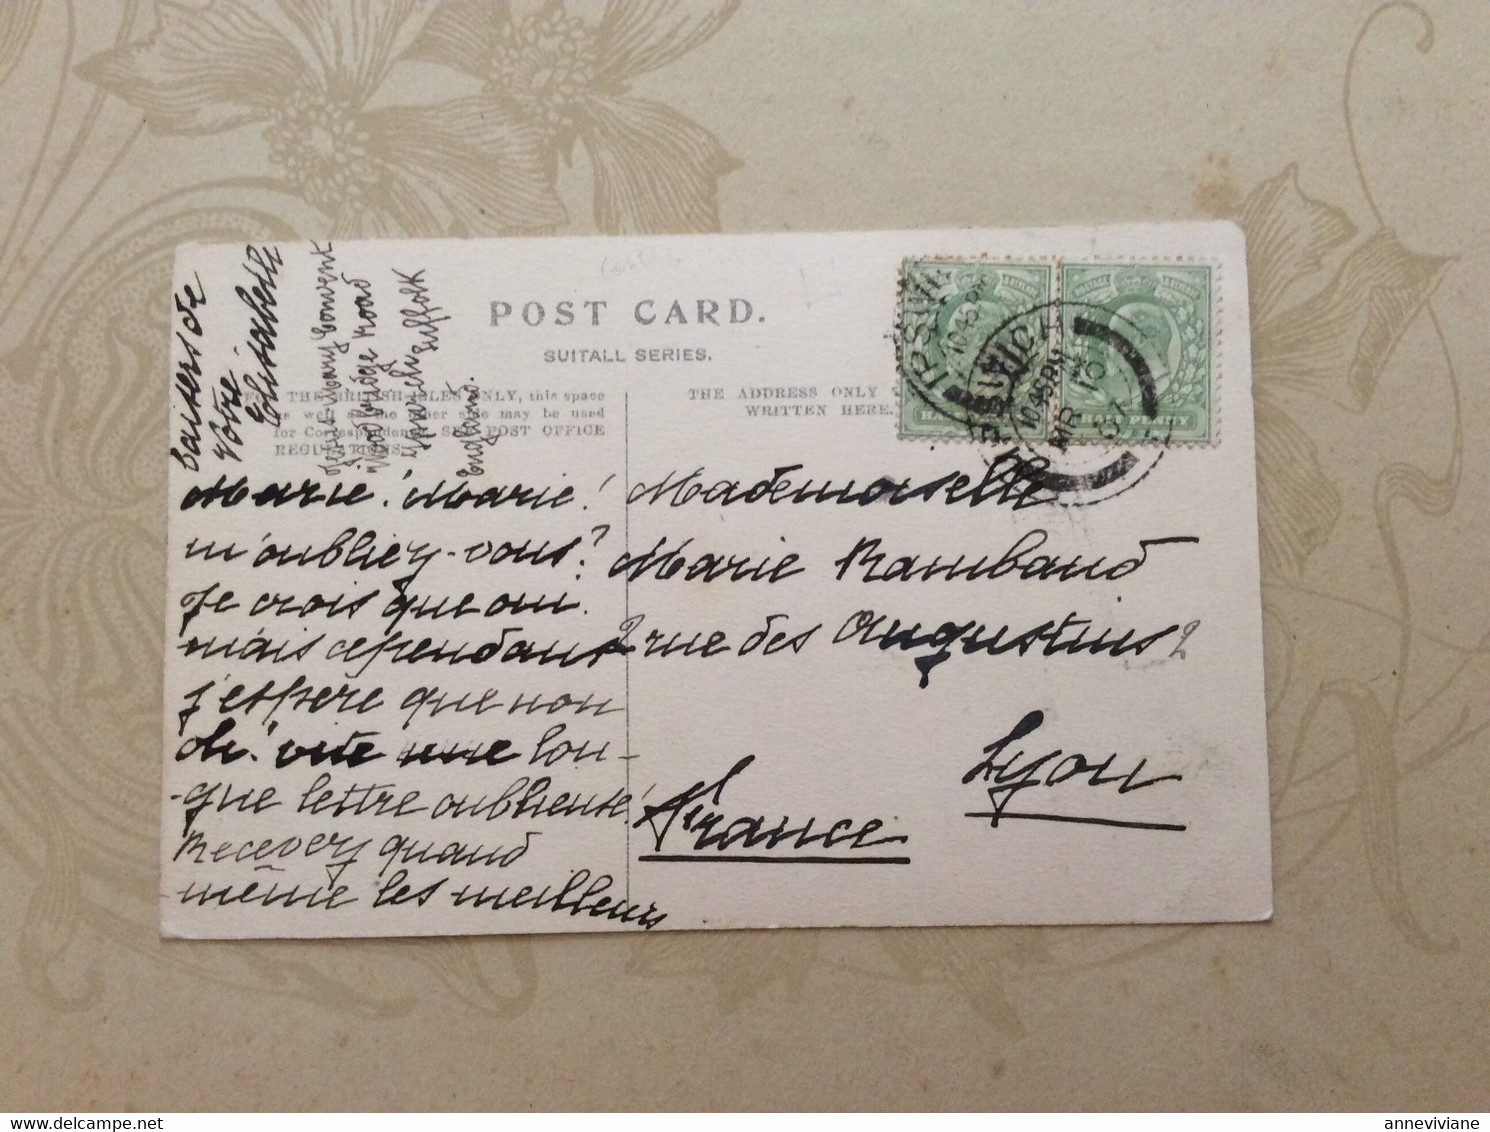 POST CARD.
SUITALL SERIES.
FOR THE BRITISH ISLES ONLY, this space
as well as the other side may be used
for Correspondence. SEE POST OFFICE
REGULATIONS.
THE ADDRESS ONLY
WRITTEN HERE.
Marie! Marie!
m'oubliez-vous?
Je crois que oui.
mais cependant
j'espère que non
oh! vite une lon-
-gue lettre oublieuse!
Recevez quand
même les meilleurs
baisers de
Votre
Elisabeth
Convent
Woodbridge Road
Ipswich Suffolk
England.
Mademoiselle
Marie Rambaud
2 rue des Augustins 2
Lyon
France
IPSWICH
10.45 PM
MR
10
HALF PENNY
anneviviane